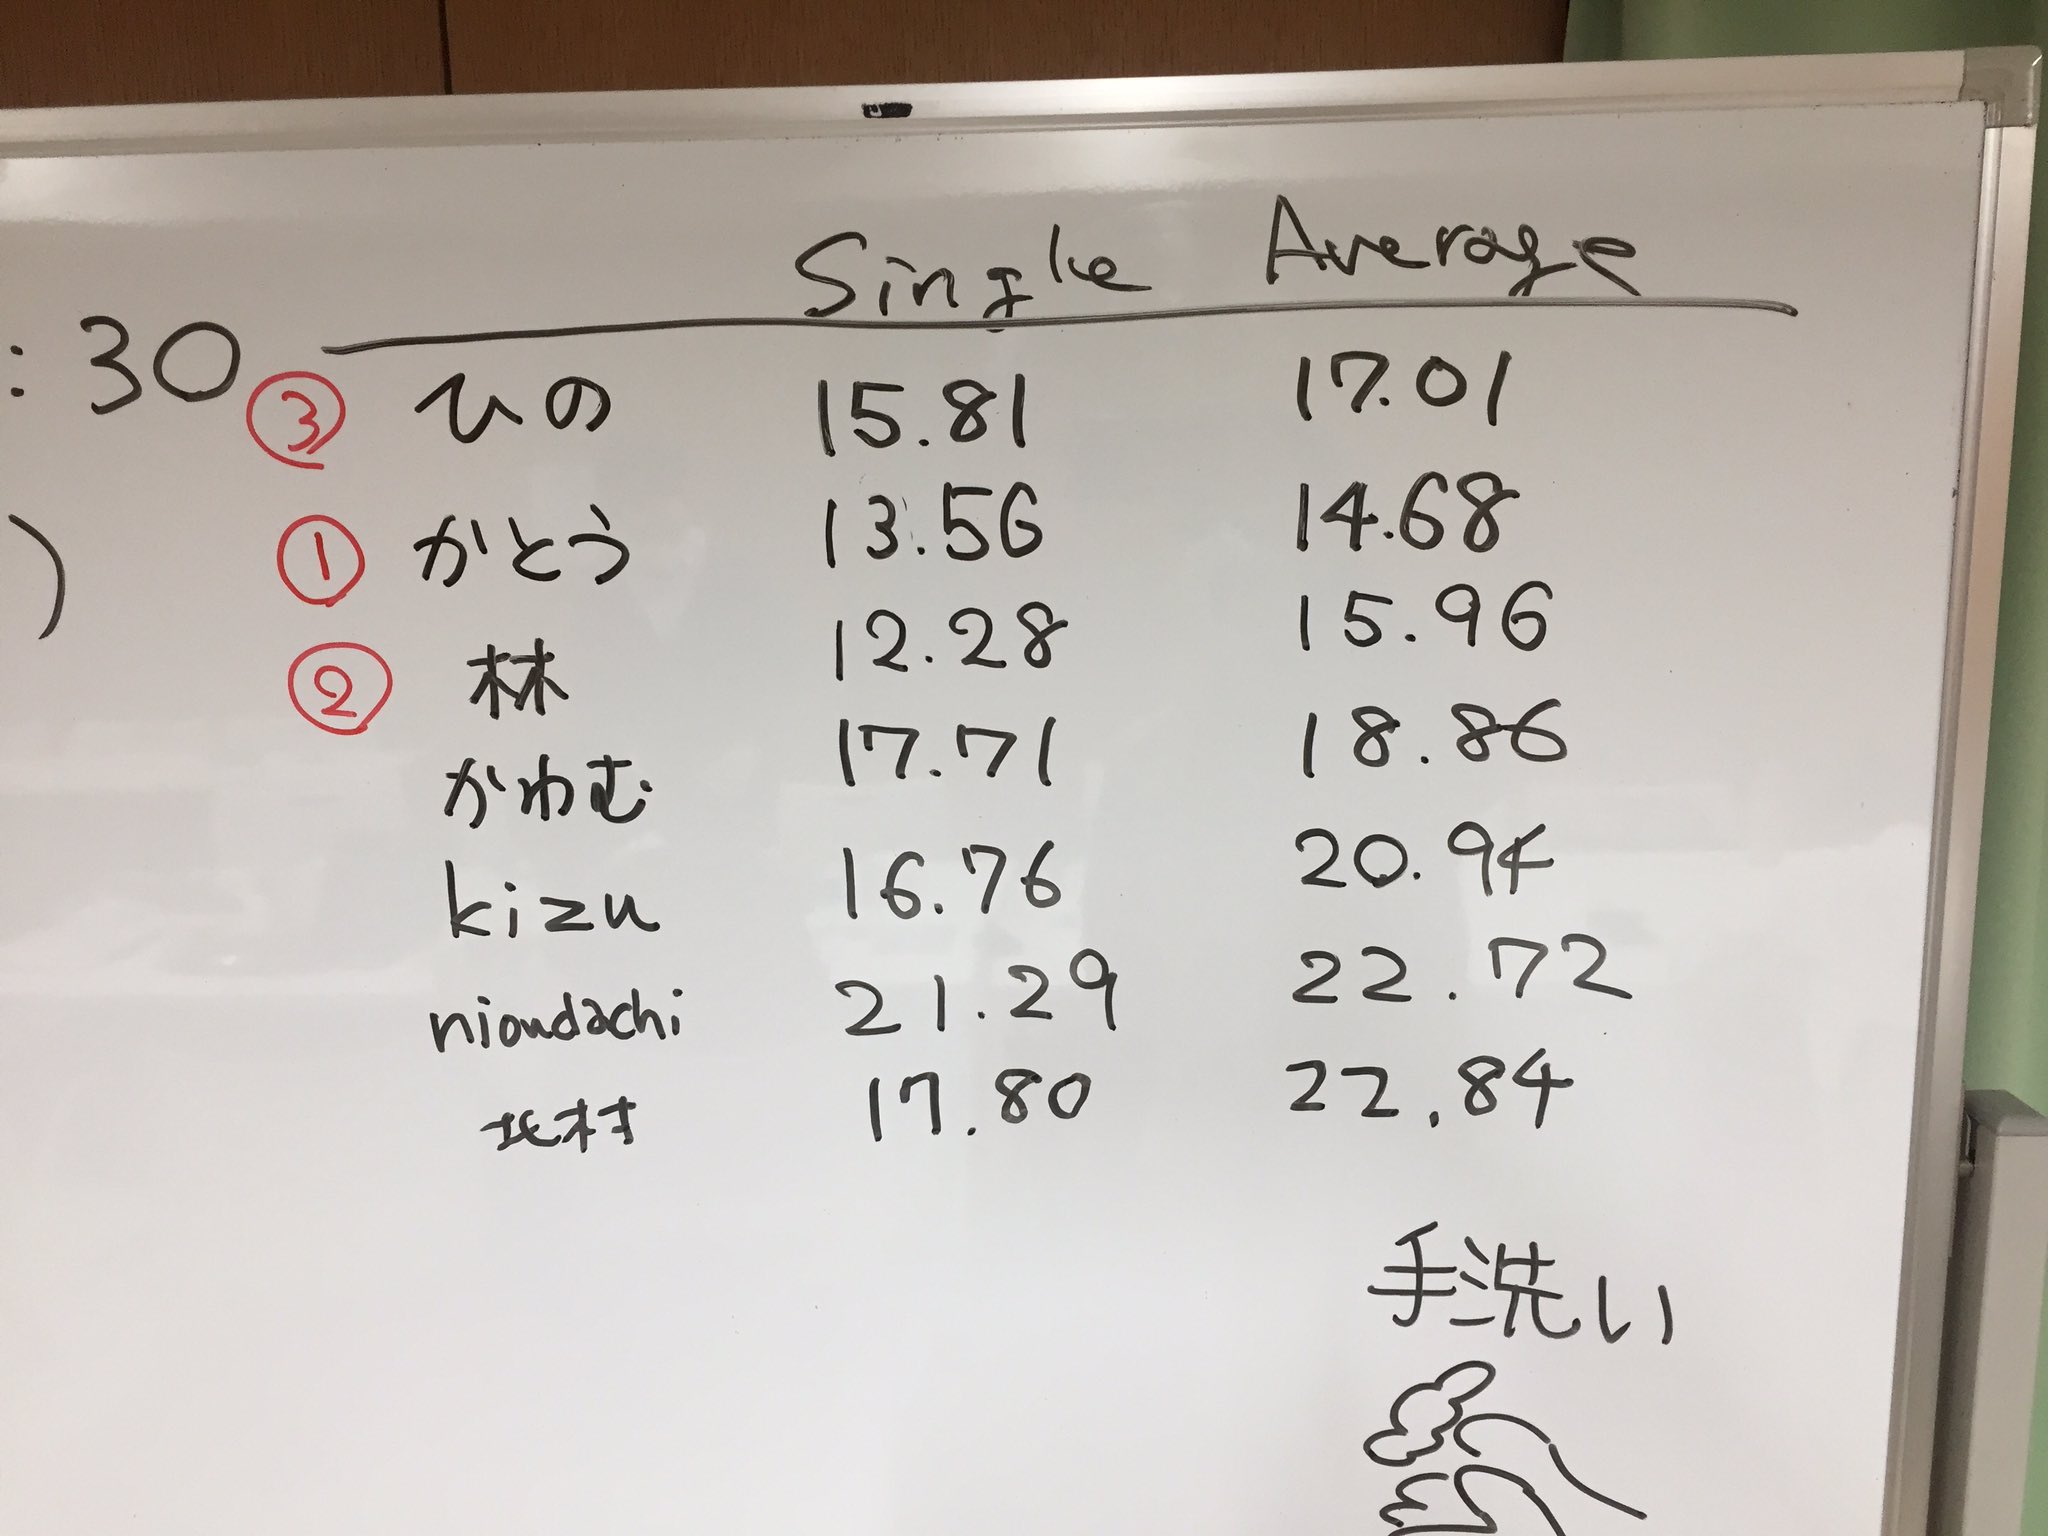 Single Average
:30
③ ひの 15.81 17.01
① かとう 13.56 14.68
)
② 林 12.28 15.96
かわむ 17.71 18.86
kizu 16.76 20.94
nioudachi 21.29 22.72
北村 17.80 22.84
手洗い